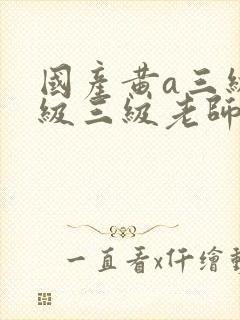 國產黄a三級
級三級老師
一直看x仟繪動